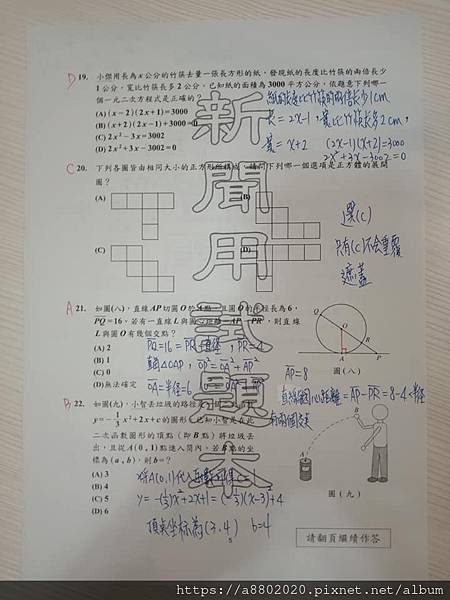 D 19. 小傑用長為x公分的竹筷去量一張長方形的紙，發現紙的長度比竹筷的兩倍長少
1公分，寬比竹筷長多2公分。已知紙的面積為3000平方公分，依題意下列哪一
個一元二次方程式是正確的？
(A) (x－2)(2x＋1)＝3000
(B) (x＋2)(2x－1)＋3000＝0
(C) 2x²－3x＝3002
(D) 2x²＋3x－3002＝0
紙的長度比竹筷的兩倍長少1cm
長＝2x-1，寬比竹筷長多2cm，
寬＝x+2 (2x-1)(x+2)=3000
2x²+3x-3002=0
C 20. 下列各圖皆由相同大小的正方形所構成，請問下列哪一個選項是正方體的展開
圖？
(A) (B)
(C) (D)
選(C)
只有(C)不會重覆
遮蓋
A 21. 如圖(八)，直線AP切圓O於A點，且圓O的半徑長為6，
PQ＝16。若有一直線L與圓心距離＝AP－PR，則直線
L與圓O有幾個交點？
(A) 2
(B) 1
(C) 0
(D)無法確定
PQ=16=PR+直徑，PR=4
直角△OAP，OP²=OA²+AP²
OA=半徑=6
AP=8
直線L與圓心距離=AP-PR=8-4<半徑
有兩個交點
Q
O
R
A P
圖(八)
B 22. 如圖(九)，小智丟垃圾的路徑
y＝－1/3 x²＋2x＋c的圖形，已知小智是在此
二次函數圖形的頂點（即B點）將垃圾丟
出，且從A(0，1)點進入筒內，若B點的坐
標為(a，b)，則b＝？
(A) 3
(B) 4
(C) 5
(D) 6
將A(0,1)代入函數可得c=1
y=-(1/3)x²+2x+1=(-1/3)(x-3)+4
頂點坐標為(3,4) b=4
B
A
圖(九)
新聞用試題本
5
請翻頁繼續作答
https://a8802020.pixnet.net/album